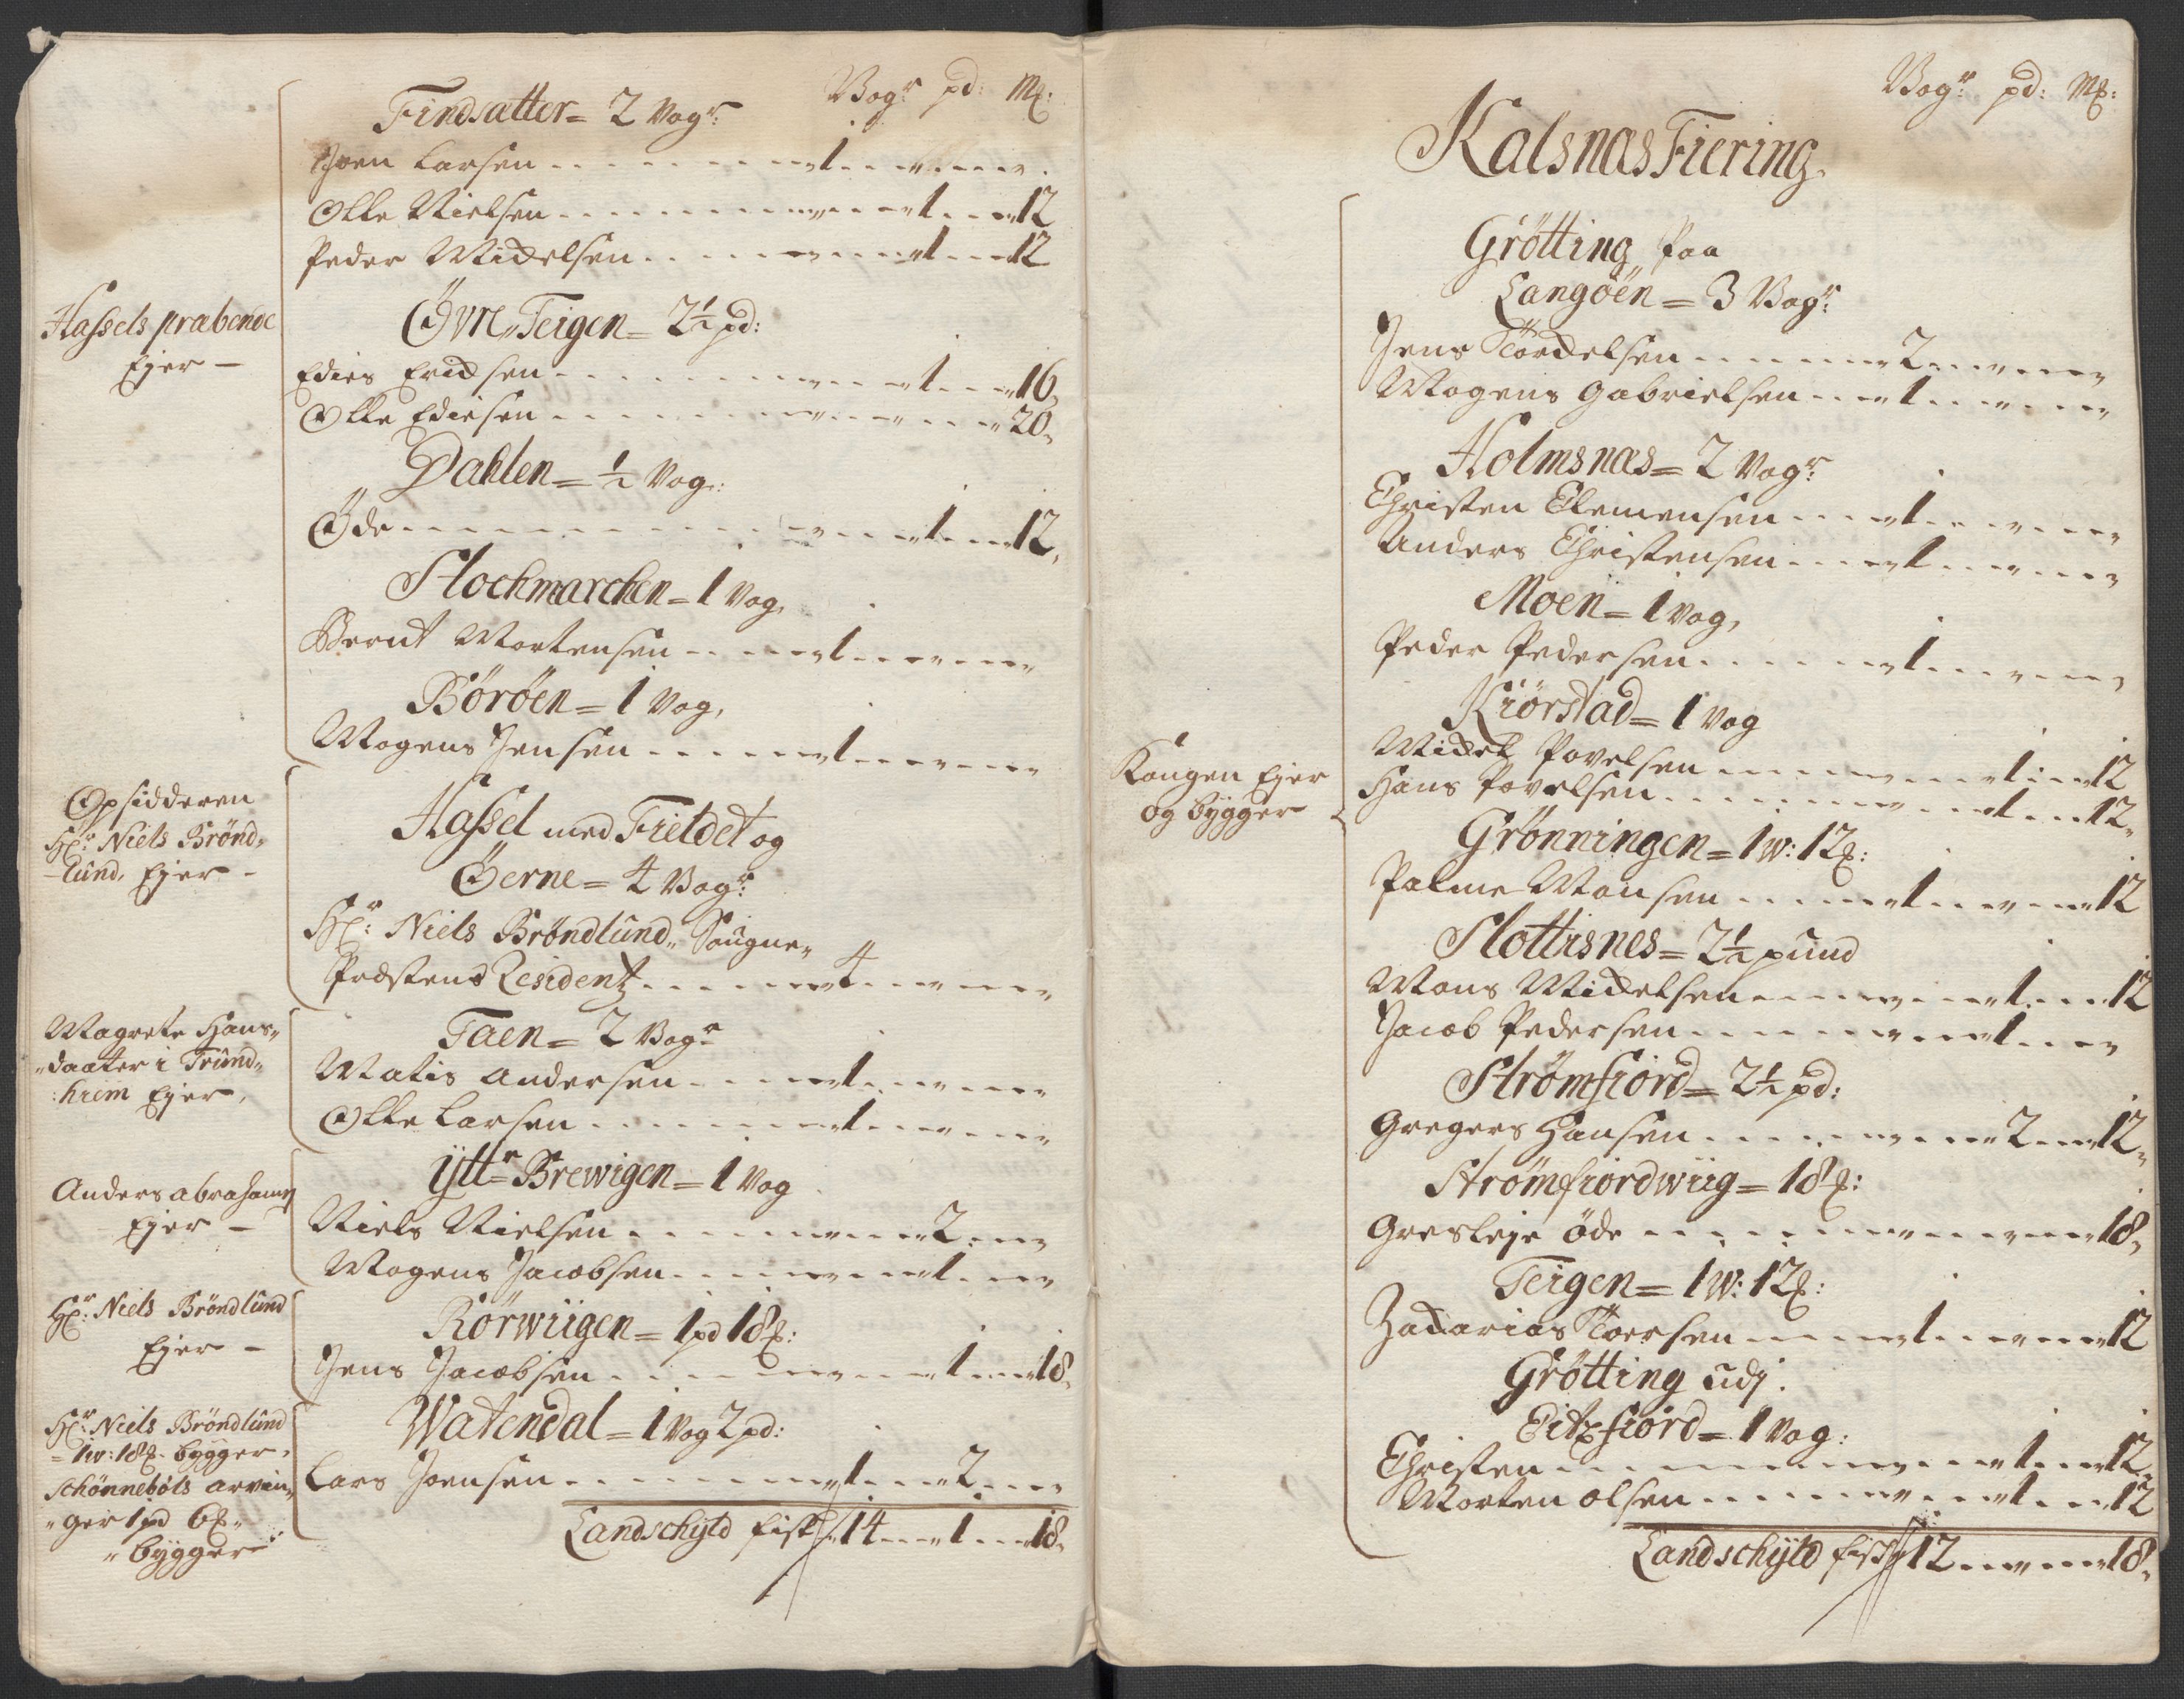 Vogr pd: M&:
Findsætter = 2 Vogr:
Joen Larsen - - - 1 - - -
Olle Nielsen - - - 1 - - 12
Peder Michelsen - - - 1 - - 12
Hassels præbende
Ejer -
Øvre Teigen = 2½ pd:
Edies Erichsen - - - 1 - - 16,
Olle Ediesen - - - 20,
Dahlen = ½ Vog:
Øde - - - 1 - - 12,
Stochmarchen = 1 Vog,
Bernt Mortensen - - - 1 - - -
Böröen = 1 Vog,
Mogens Jensen - - - 1 - - -
Opsidderen
Hr: Niels Brönd-
-lund, Ejer -
Hassel med Fieldet og
Öerne = 4 Vogr:
Hr: Niels Bröndlund, Sougne-
Præstens Residentz - - - 4 - - -
Magrete Hans-
-daater i Trund-
:hiem Ejer,
Taen = 2 Vogr
Matis Andersen - - - 1 - - -
Olle Larsen - - - 1 - - -
Anders Abrahams
Ejer -
Ytt= Brewigen = 1 Vog
Niels Nielsen - - - 2 - -
Mogens Jacobsen - - - 1 - -
Hr: Niels Bröndlund
Ejer -
Rörwiigen = 1 pd 18 &:
Jens Jacobsen - - - 1 - - 18,
Hr: Niels Bröndlund
= 1 w: 18 &. bygger,
Schönnebøls Arvin-
-ger 1 pd 6 &,
bygger
Watendal = 1 Vog 2 pd:
Lars Joensen - - - 1 - - 2 - -
Landschyld fisk 14 - - 1 - - 18,
Vogr: pd: M&:
Kalsnæs Fiering.
Grötting paa
Langöen = 3 Vogr:
Jens Tördelsen - - - 2 - - -
Mogens Gabrielsen - - 1 - - -
Holmsnæs = 2 Vogr:
Christen Clemensen - - - 1 - - -
Anders Christensen - - - 1 - - -
Moen = 1 Vog,
Peder Pedersen - - - 1 - - -
Kongen Ejer
og bygger
Kiörstad = 1 Vog
Michel Povelsen - - - 1 - - 12
Hans Povelsen - - - 1 - - 12,
Grönningen = 1 w: 12 &:
Palme Monsen - - - 1 - - - 12
Slottisnes = 2½ pund
Mons Michelsen - - - 1 - - 12
Jacob Pedersen - - - 1 - - -
Strömfiord = 2½ pd:
Gregers Hansen - - - 2 - - 12,
Strömfiordwiig = 18 &:
Gresleje öde - - - 18,
Teigen = 1 w: 12 &:
Zacharias Toersen - - - 1 - - - 12
Grötting udj.
Eitzfiord = 1 Vog:
Christen - - - 1 - - 12,
Morten Olsen - - - 1 - - 12
Landschyld fisk 12 - - - 18,